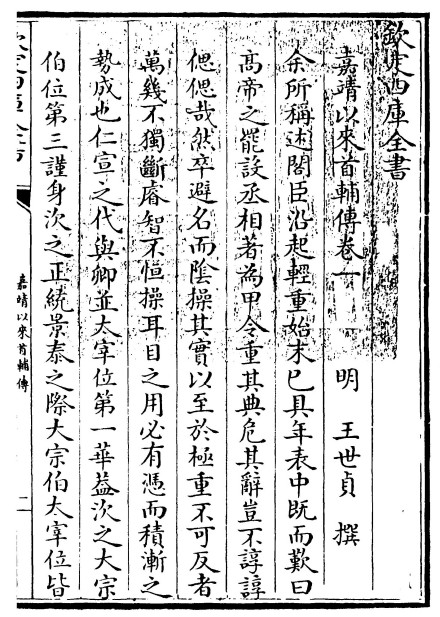 欽定四庫全書
嘉靖以來首輔傳卷一
明　王世貞　撰
余所稱述閣臣沿起輕重始末已具年表中既而歎曰
高帝之罷設丞相著為甲令重其典危其辭豈不諄諄
偲偲哉然卒避名而陰操其實以至於極重不可反者
萬幾不獨斷睿智不恒操耳目之用必有憑而積漸之
勢成也仁宣之代與卿並太宰位第一華葢次之大宗
伯位第三謹身次之正統景泰之際大宗伯太宰位皆
嘉靖以來首輔傳